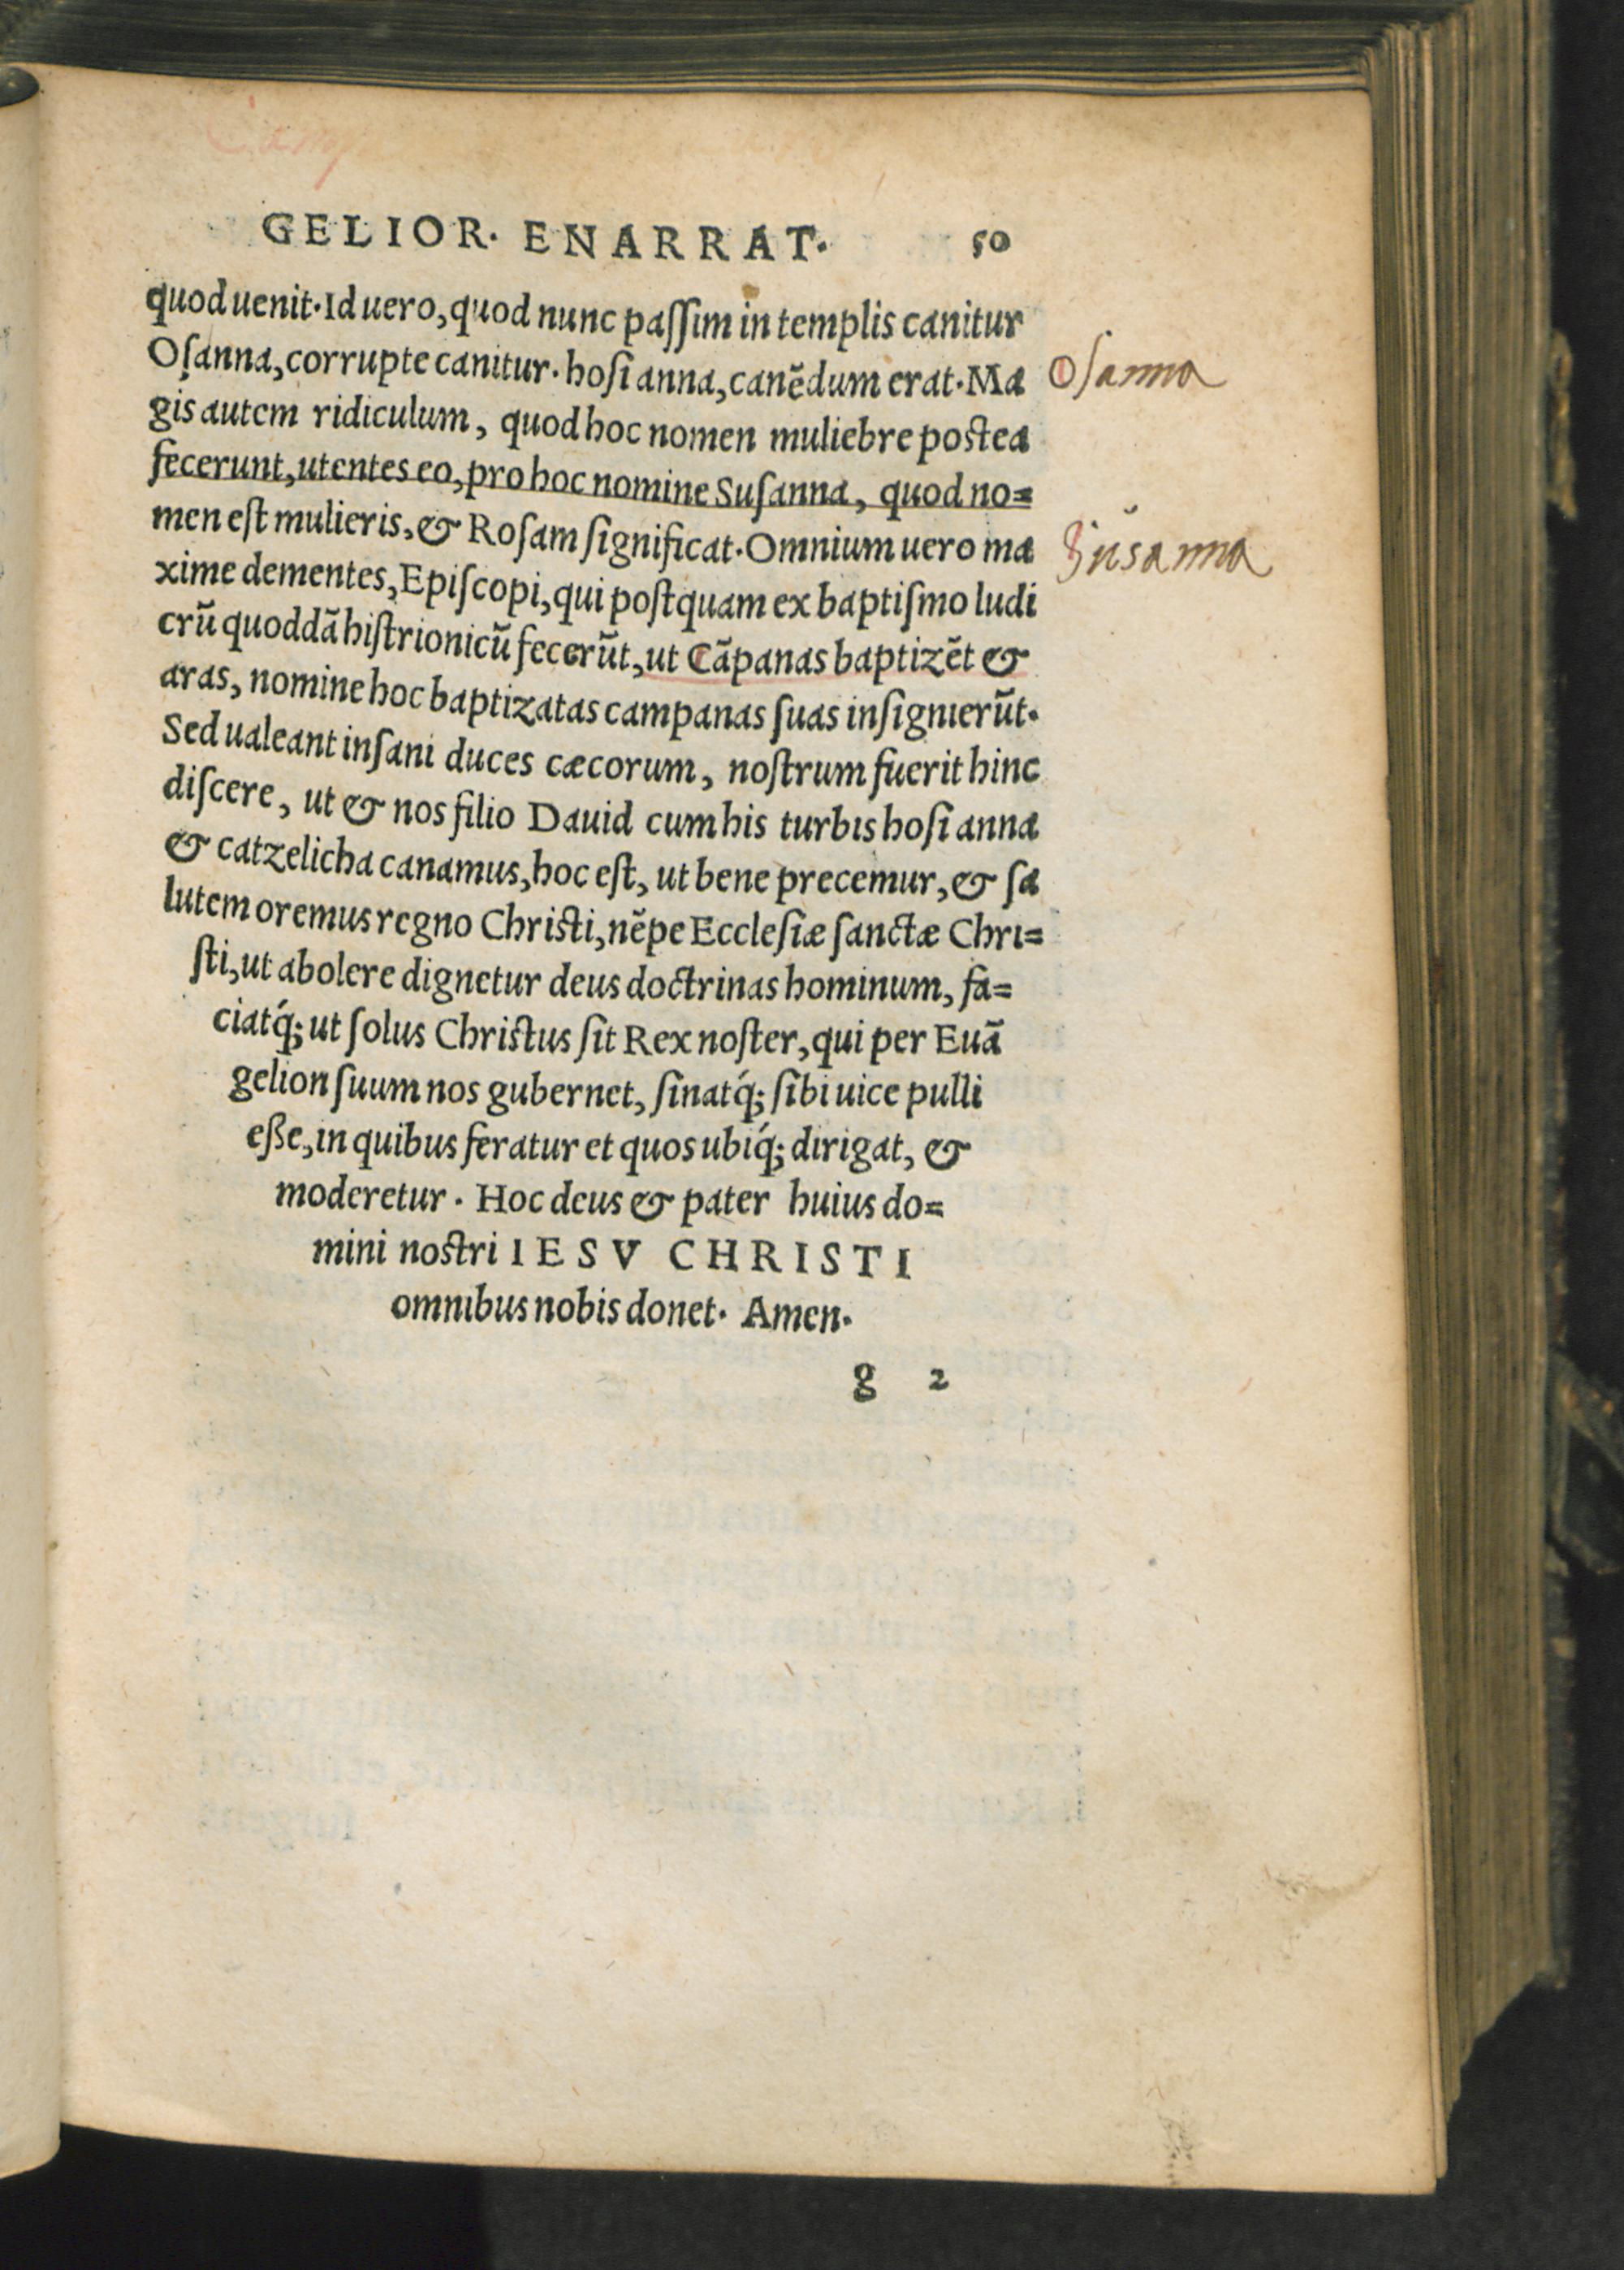 GELIOR. ENARRAT. 50
quod uenit. Id uero, quod nunc paſſim in templis canitur
Oſanna, corrupte canitur. hoſi anna, canẽdum erat. Ma
Oſanna
gis autem ridiculum, quod hoc nomen muliebre postea
fecerunt, utentes eo, pro hoc nomine Suſanna, quod no=
men eſt mulieris, & Roſam ſignificat. Omnium uero ma
Suſanna
xime dementes, Epiſcopi, qui poſtquam ex baptiſmo ludi
crũ quoddã hiſtrionicũ fecerũt, ut Cãpanas baptizẽt &
aras, nomine hoc baptizatas campanas ſuas inſignierũt.
Sed ualeant inſani duces cæcorum, noſtrum fuerit hinc
diſcere, ut & nos filio Dauid cum his turbis hoſi anna
& catzelicha canamus, hoc eſt, ut bene precemur, & ſa
lutem oremus regno Christi, nẽpe Eccleſiæ ſanctæ Chri=
ſti, ut abolere dignetur deus doctrinas hominum, fa=
ciatq́; ut ſolus Christus ſit Rex noſter, qui per Euã
gelion ſuum nos gubernet, ſinatq́; ſibi uice pulli
eße, in quibus feratur et quos ubiq́; dirigat, &
moderetur. Hoc deus & pater huius do=
mini nostri IESV CHRISTI
omnibus nobis donet. Amen.
g 2